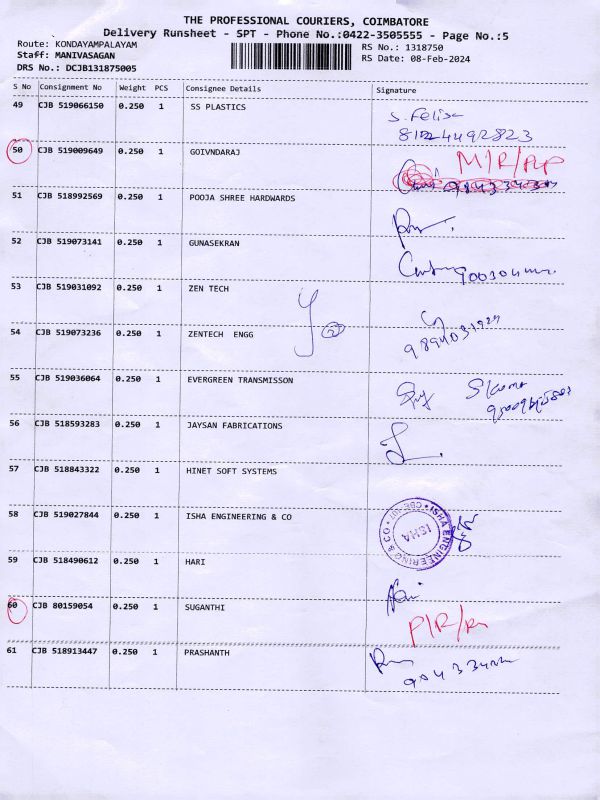 THE PROFESSIONAL COURIERS, COIMBATORE
Delivery Runsheet - SPT - Phone No.:0422-3505555 - Page No.:5
Route: KONDAYAMPALAYAM RS No.: 1318750
Staff: MANIVASAGAN RS Date: 08-Feb-2024
DRS No.: DCJB131875005
S No Consignment No Weight PCS Consignee Details Signature
49 CJB 519066150 0.250 1 SS PLASTICS
S. Felisa
50 CJB 519009649 0.250 1 GOIVNDARAJ
M/R/
51 CJB 518992569 0.250 1 POOJA SHREE HARDWARDS
52 CJB 519073141 0.250 1 GUNASEKRAN
53 CJB 519031092 0.250 1 ZEN TECH
54 CJB 519073236 0.250 1 ZENTECH ENGG
55 CJB 519036064 0.250 1 EVERGREEN TRANSMISSON
56 CJB 518593283 0.250 1 JAYSAN FABRICATIONS
57 CJB 518843322 0.250 1 HINET SOFT SYSTEMS
58 CJB 519027844 0.250 1 ISHA ENGINEERING & CO
ISHA ENGINEERING & CO
ISHA
59 CJB 518490612 0.250 1 HARI
60 CJB 80159054 0.250 1 SUGANTHI
P/R/
61 CJB 518913447 0.250 1 PRASHANTH